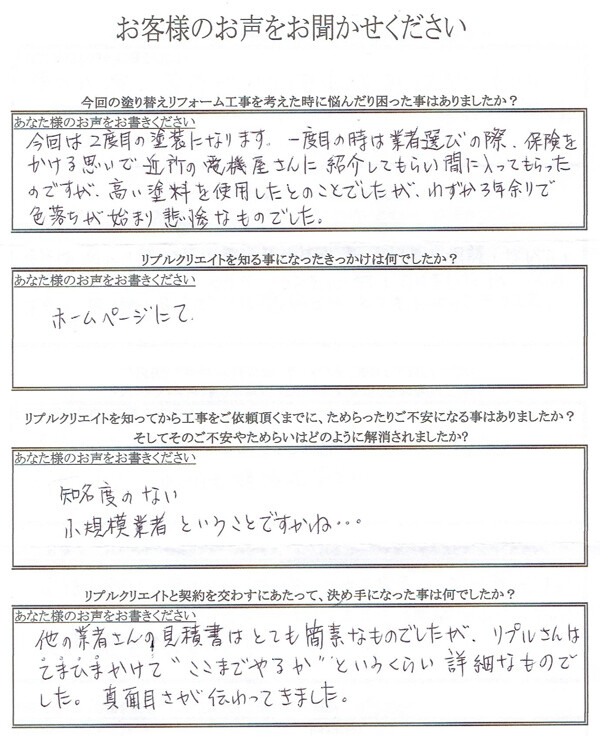 お客様のお声をお聞かせください
今回の塗り替えリフォーム工事を考えた時に悩んだり困った事はありましたか？
あなた様のお声をお書きください
今回は2度目の塗装になります。一度目の時は業者選びの際、保険を
かける思いで近所の電機座さんに紹介してもらい間に入ってもらった
のですが、高い塗料を使用したとのことでしたが、わずか3年余りで
色落ちが始まり悲惨なものでした。
リプルクリエイトを知る事になったきっかけは何でしたか？
あなた様のお声をお書きください
ホームページにて.
リプルクリエイトを知ってから工事をご依頼頂くまでに、ためらったりご不安になる事はありましたか？
そしてそのご不安やためらいはどのように解消されましたか？
あなた様のお声をお書きください
知名度のない
小規模業者ということですかね・・・
リプルクリエイトと契約を交わすにあたって、決め手になった事は何でしたか？
あなた様のお声をお書きください
他の業者さんの見積書はとても簡素なものでしたが、リプルさんは
てまひまかけて"ここまでやるか"というくらい詳細なもので
した。真面目さが伝わってきました。